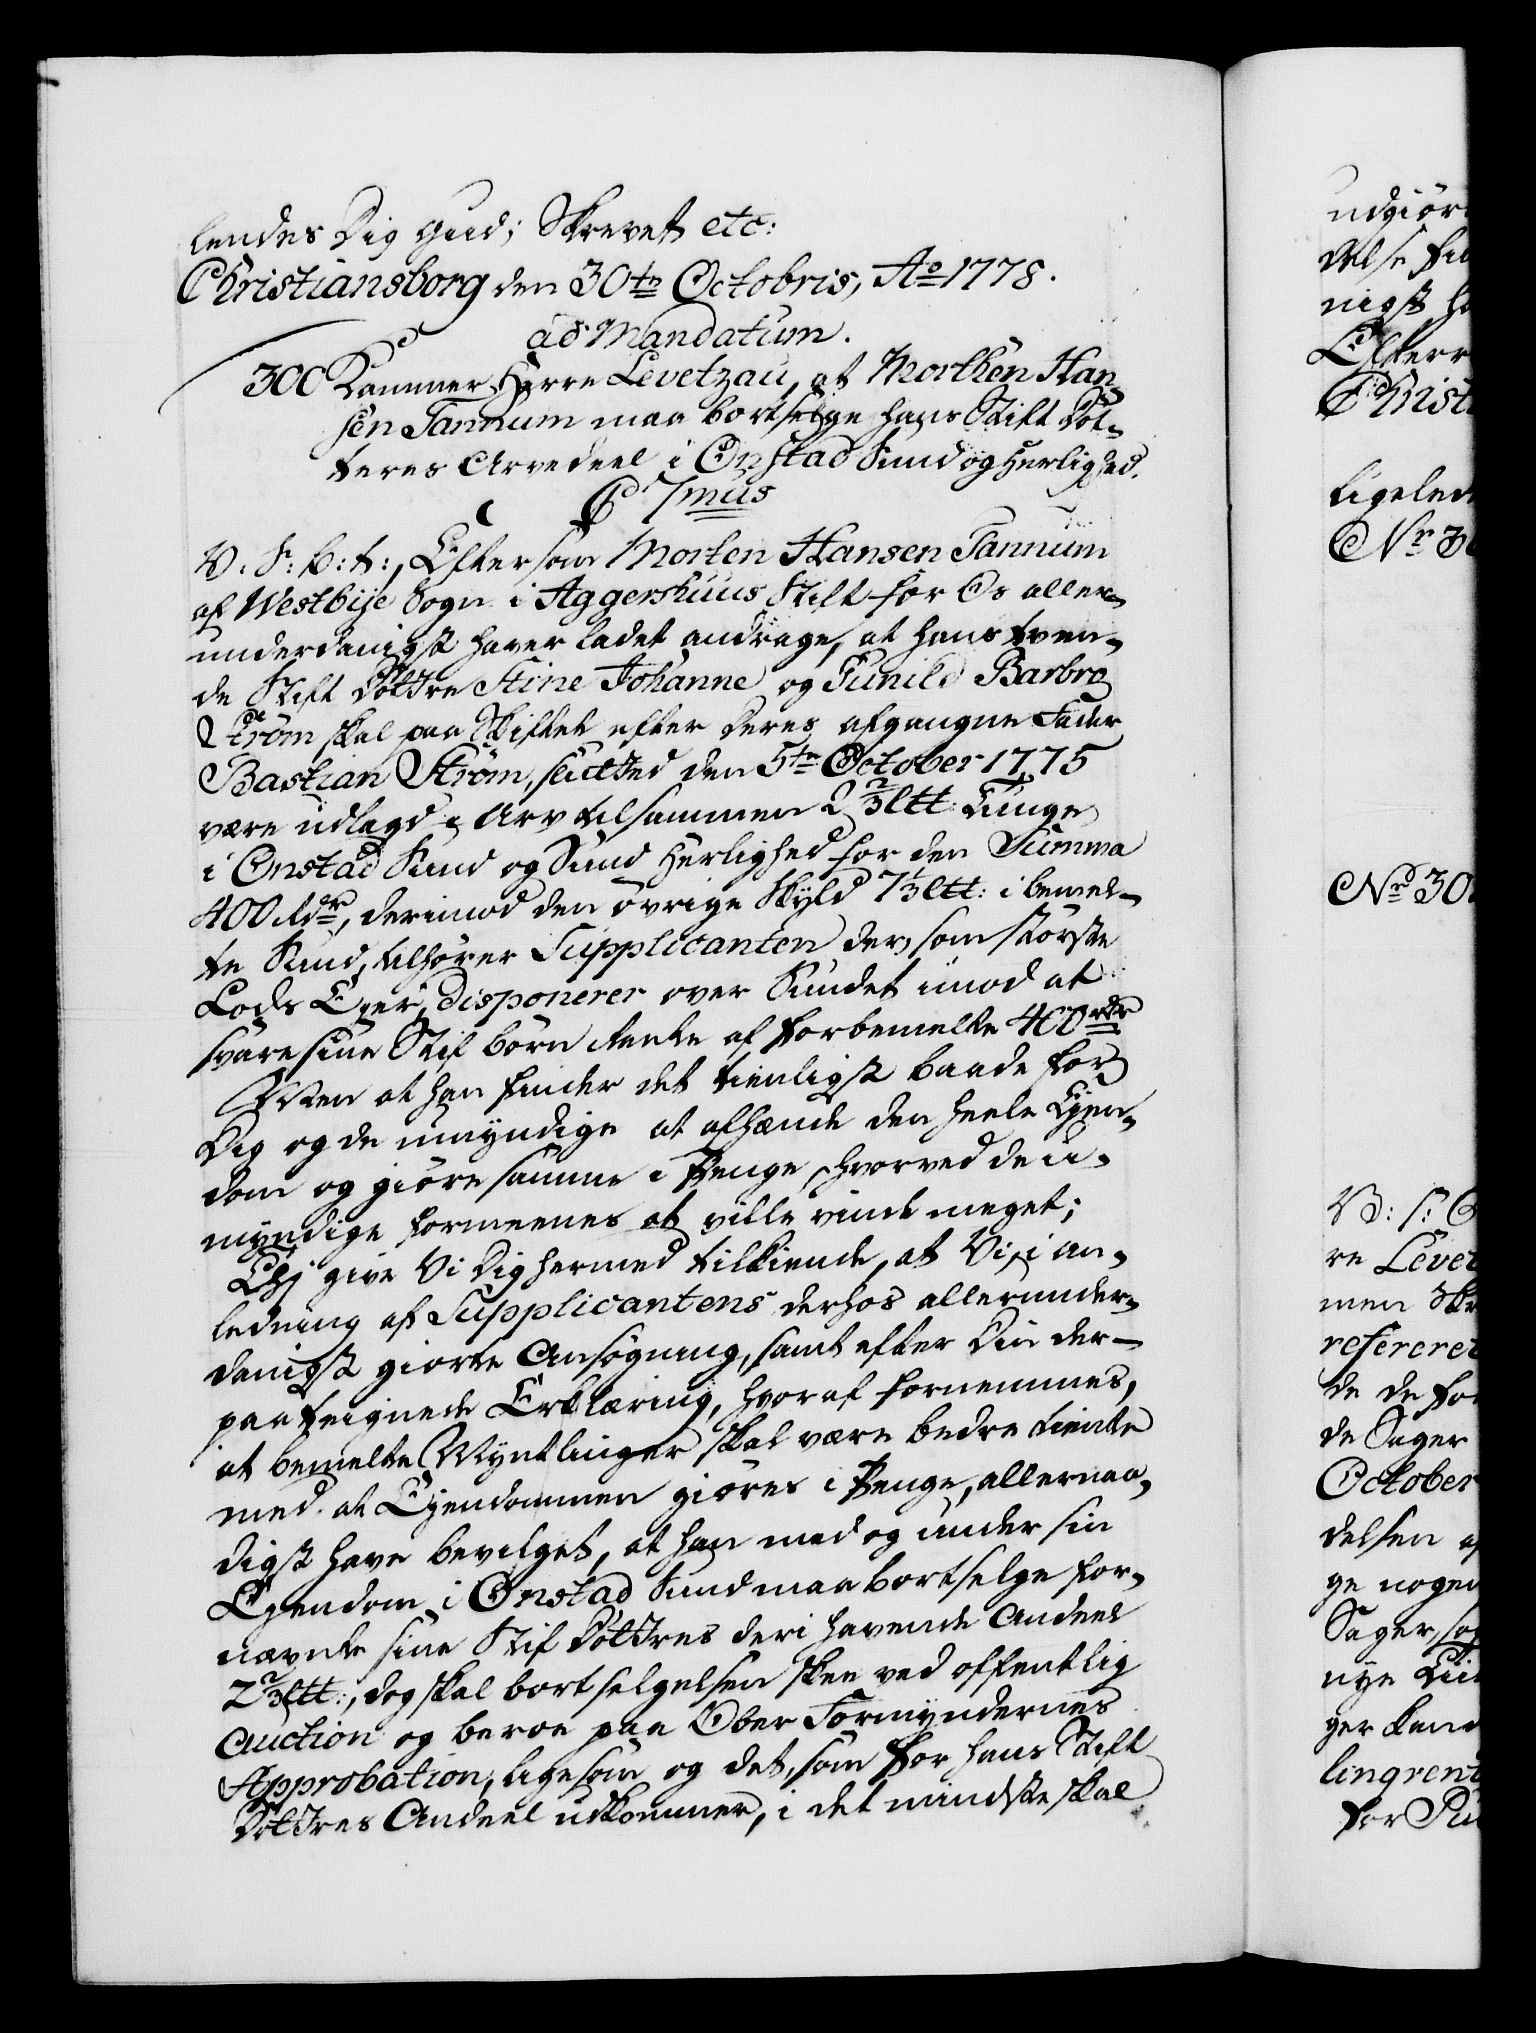 lendes Dig Gud; Skrevet etc:
Christiansborg den 30te Octobris, Ao 1778.
ad Mandatum.
300 Kammer Herre Levetzau, at Morthen Han-
sen Tannum maa bortselge hans Stift Døt-
teres Arvedeel i Onstad Sund og Herlighed.
C 7mus
V. S: b: t:, Eftersom Morten Hansen Tannum
af Westbye Sogn i Aggershuus Stift for Os aller-
underdanigst haver ladet andrage, at hans tven-
de Stift Døttre Stine Johanne og Gunild Barbra
Strøm skal paa Skiftet efter deres afgangne Fader
Bastian Strøm, slutted den 5te October 1775
være udlagd i Arv tilsammen 2 2/3 ltt: Tunge
i Onstad Sund og Sund Herlighed for den Summa
400 rdr, derimod den øvrige Skyld 7 1/3 ltt: i bemel-
te Sund, tilhører Supplicanten der, som største
Lods Eyer, disponerer over Sundet imod at
svare sine Stif børn Rente af forbemelte 400 rdr
Men at han finder det tienligst baade for
Dig og de umyndige at afhænde den heele Eyen-
dom og giøre samme i Penge, hvorved de u-
myndige formeenes at ville vinde meget;
Thj give Vi Dig hermed tilkiende, at Vi, i An-
ledning af Supplicantens derhos allerunder-
danigst giorte Ansøgning, samt efter Din der-
paa teignede Erklæring, hvoraf fornemmes,
at bemelte Myntlinger skal være bedre tiente
med at Eyendommen giøres i Penge, allernaa-
digst have bevilget, at han med og under sin
Eyendom i Onstad Sund maa bortselge for-
nævnte sine Stif Døttres deri havende Andeel
2 2/3 ltt:, dog skal bortselgelsen skee ved offentlig
Auction og beroe paa Ober Formyndernes
Approbation, ligesom og det, som for hans Stift
Døttres Andeel udkommer, i det mindste skal
udgiør
delse
nigst
Efterr
Christ
ligeled
No 30
No 30
V: S:
re Leve
men Skr
referere
de de for
de Sager
October
delsen
ge nogen
Sager, so
nye
ger
lingrent
for